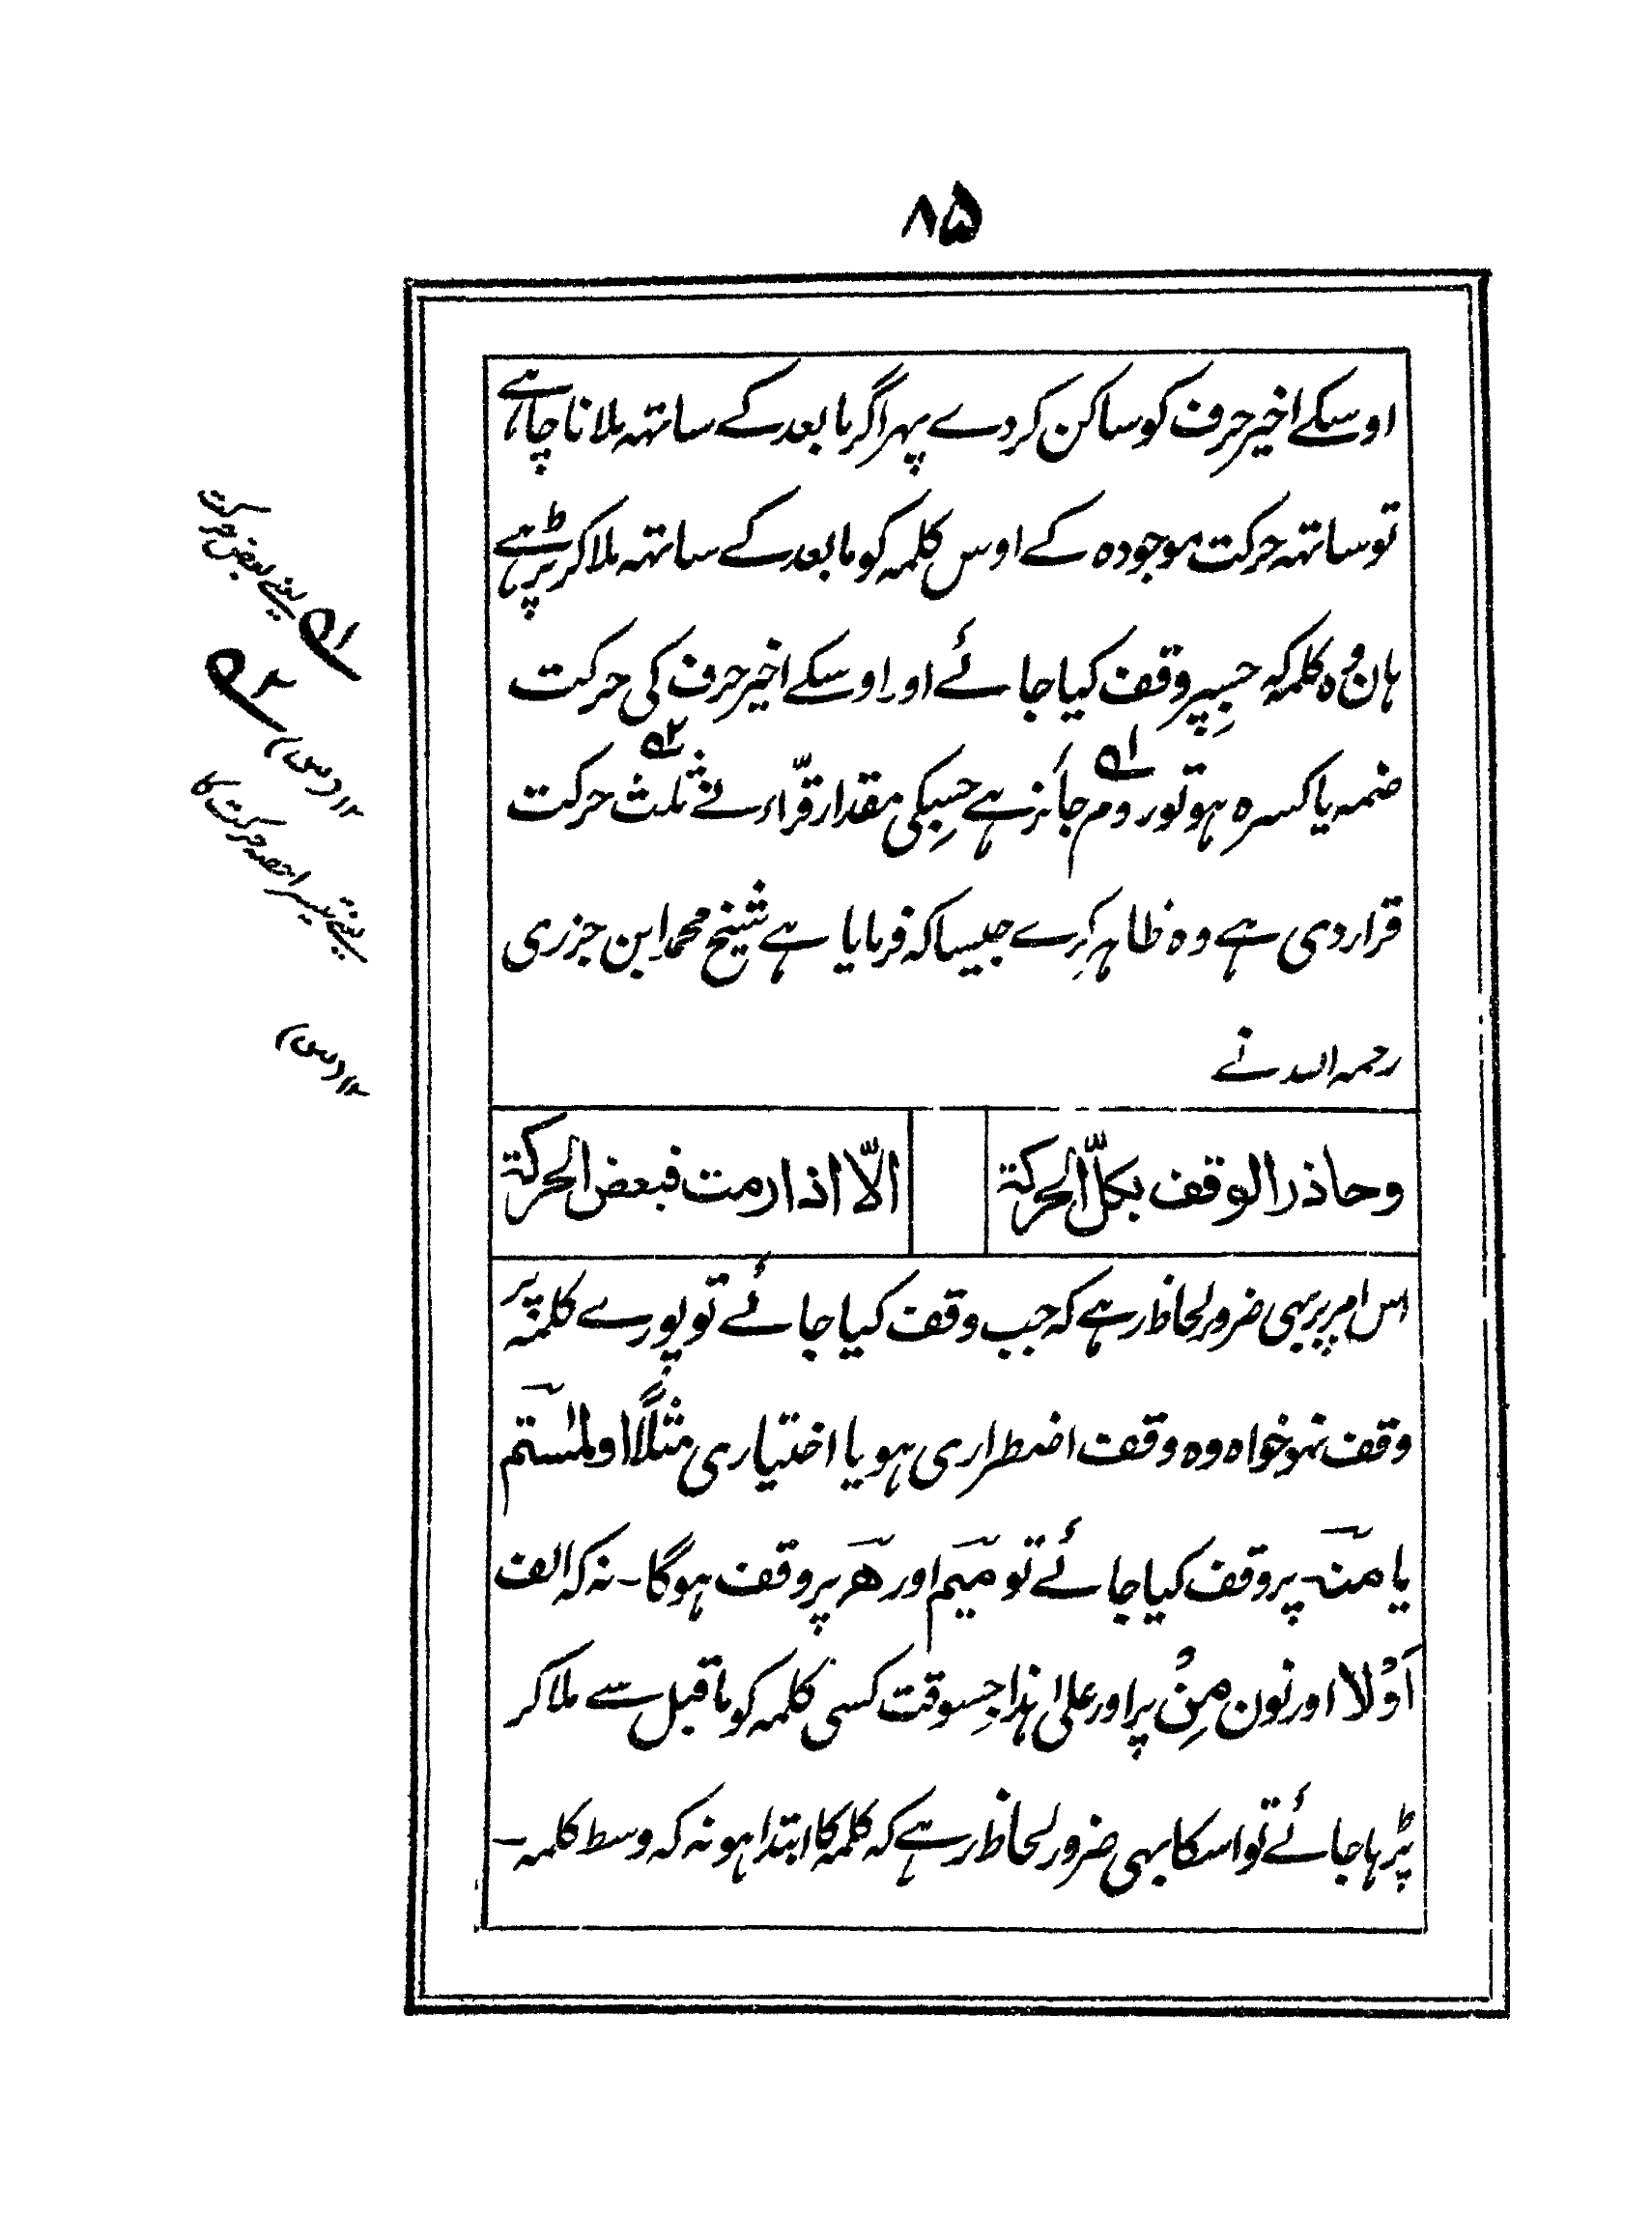 ۸۵
اوسکے اخیر حرف کو ساکن کر دے پہر اگر مابعد کے ساتہہ ملانا چاہے
تو ساتہہ حرکت موجودہ کے اوس کلمہ کو مابعد کے ساتہہ ملا کر پڑہے
ہان وہ کلمہ کہ جسپر وقف کیا جائے اور اوسکے اخیر حرف کی حرکت
ضمہ یا کسرہ ہو تو روم جائز ہے جسکی مقدار قرّاء نے ثلث حرکت
قرار دی ہے وہ ظاہر کرے جیسا کہ فرمایا ہے شیخ محمد ابن جزری
رحمہ اللہ نے
وحاذر الوقف بکلّ الحرکة
الّا اذا رمت فبعض الحرکة
اس امر پر بہی ضرور لحاظ رہے کہ جب وقف کیا جائے تو پورے کلمہ پر
وقف نہو خواہ وہ وقف اضطراری ہو یا اختیاری مثلاً اولٰمستم
یا منہ پر وقف کیا جائے تو میم اور ھر پر وقف ہوگا۔ نہ کہ الف
اَوْلا اور نون مِنْ پر اور علی ہذا جسوقت کسی کلمہ کو ماقبل سے ملا کر
پڑہا جائے تو اسکا بہی ضرور لحاظ رہے کہ کلمہ کا ابتدا ہو نہ کہ وسط کلمہ۔
۱؎ یعنے بعض حرکت
۱۲ (س)
۲؎ یعنے تیسرا حصہ حرکت کا
۱۲ (س)